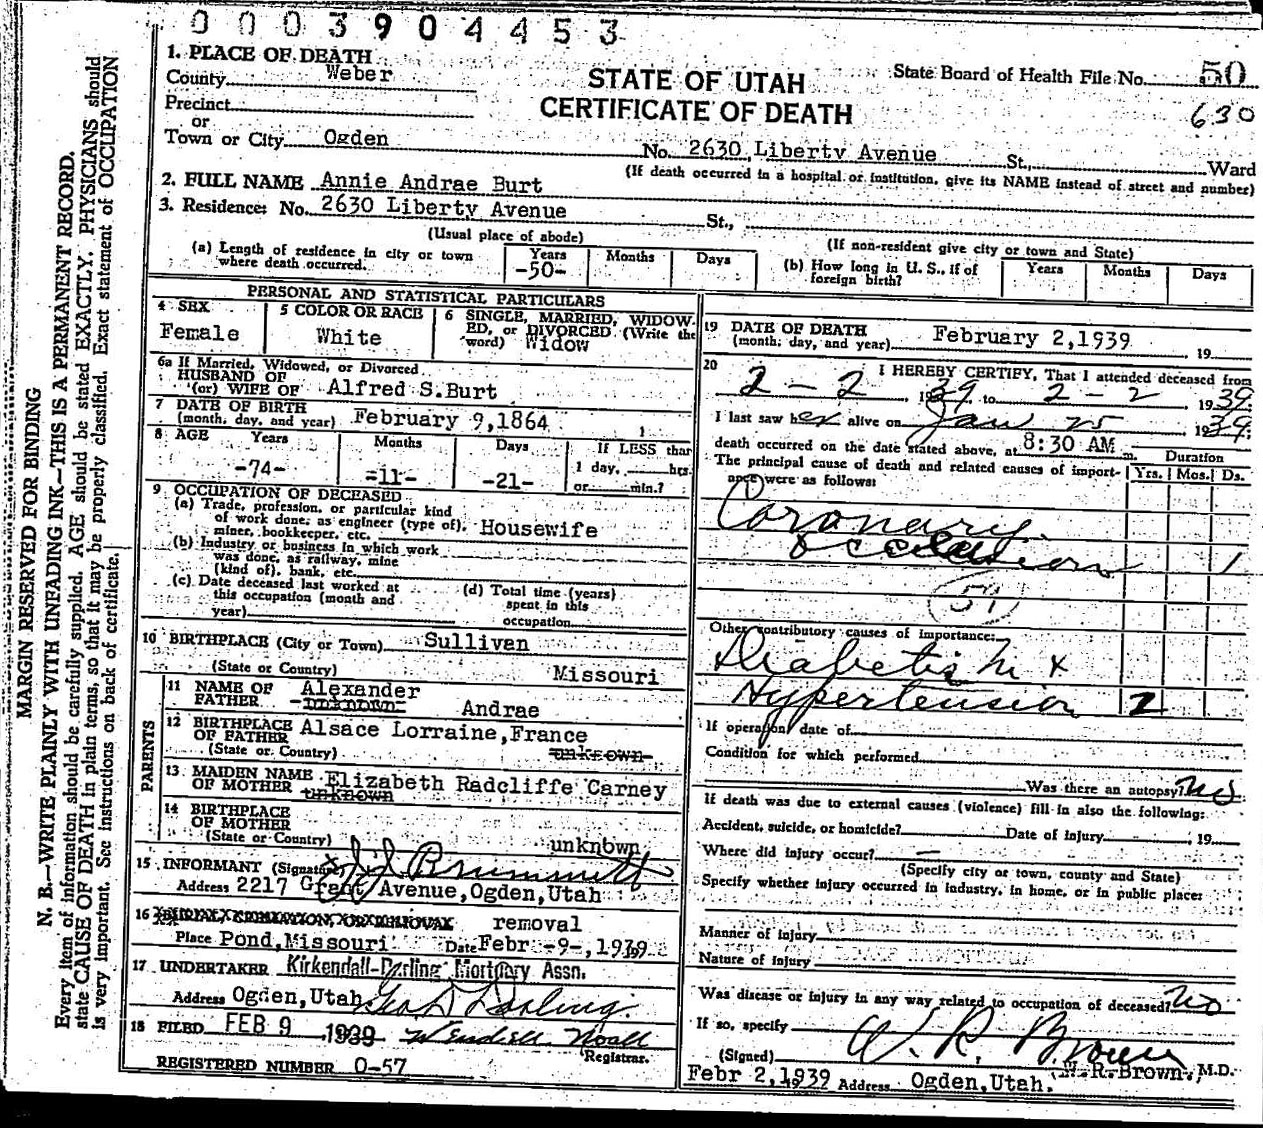 0003904453
1. PLACE OF DEATH
County Weber
STATE OF UTAH
CERTIFICATE OF DEATH
State Board of Health File No. 50
630
Precinct
or
Town or City Ogden No. 2630 Liberty Avenue St., Ward
(If death occurred in a hospital or institution, give its NAME instead of street and number)
2. FULL NAME Annie Andrae Burt
3. Residence: No. 2630 Liberty Avenue St.,
(Usual place of abode) (If non-resident give city or town and State)
(a) Length of residence in city or town where death occurred. Years -50- Months Days
(b) How long in U. S., if of foreign birth? Years Months Days
MARGIN RESERVED FOR BINDING
N. B.—WRITE PLAINLY WITH UNFADING INK—THIS IS A PERMANENT RECORD.
Every item of information should be carefully supplied. AGE should be stated EXACTLY. PHYSICIANS should
state CAUSE OF DEATH in plain terms, so that it may be properly classified. Exact statement of OCCUPATION
is very important. See instructions on back of certificate.
PERSONAL AND STATISTICAL PARTICULARS
4 SEX
Female
5 COLOR OR RACE
White
6 SINGLE, MARRIED, WIDOW-
ED, or DIVORCED (Write the
word) Widow
6a If Married, Widowed, or Divorced
HUSBAND OF
(or) WIFE OF Alfred S.Burt
7 DATE OF BIRTH
(month, day, and year) February 9,1864
8 AGE Years Months Days If LESS than
-74- -11- -21- 1 day, hrs.
or min.?
9 OCCUPATION OF DECEASED
(a) Trade, profession, or particular kind
of work done; as engineer (type of), Housewife
miner, bookkeeper, etc.
(b) Industry or business in which work
was done, as railway, mine
(kind of), bank, etc.
(c) Date deceased last worked at
this occupation (month and
year)
(d) Total time (years)
spent in this
occupation
10 BIRTHPLACE (City or Town) Sulliven
(State or Country) Missouri
PARENTS
11 NAME OF FATHER Alexander
unknown Andrae
12 BIRTHPLACE OF FATHER Alsace Lorraine,France
(State or Country) unknown
13 MAIDEN NAME OF MOTHER Elizabeth Radcliffe Carney
unknown
14 BIRTHPLACE OF MOTHER
(State or Country) unknown
15 INFORMANT (Signature) Brummett
Address 2217 Grant Avenue,Ogden,Utah
16 BURIAL, CREMATION, OR REMOVAL removal
Place Pond,Missouri Date Febr -9-,1939
17 UNDERTAKER Kirkendall-Darling Mortuary Assn.
Address Ogden,Utah Geo D Darling
18 FILED FEB 9 1939 Wendell Noall
Registrar.
REGISTERED NUMBER O-57
19 DATE OF DEATH
(month, day, and year) February 2,1939 , 19
20 I HEREBY CERTIFY, That I attended deceased from
2-2 , 1939 to 2-2 1939.
I last saw her alive on Jan 25 1939.
death occurred on the date stated above, at 8:30 AM m. Duration
The principal cause of death and related causes of import- Yrs. Mos. Ds.
ance were as follows:
Coronary
occlusion 1
Other contributory causes of importance:
Diabetis M x
Hypertension 2
If operation date of
Condition for which performed
Was there an autopsy? No
If death was due to external causes (violence) fill in also the following:
Accident, suicide, or homicide? Date of injury , 19
Where did injury occur? —
(Specify city or town, county and State)
Specify whether injury occurred in industry, in home, or in public place:
Manner of injury
Nature of injury
Was disease or injury in any way related to occupation of deceased? No
If so, specify
(Signed) W. R. Brown
W.R.Brown, M.D.
Febr 2,1939 Address Ogden,Utah.